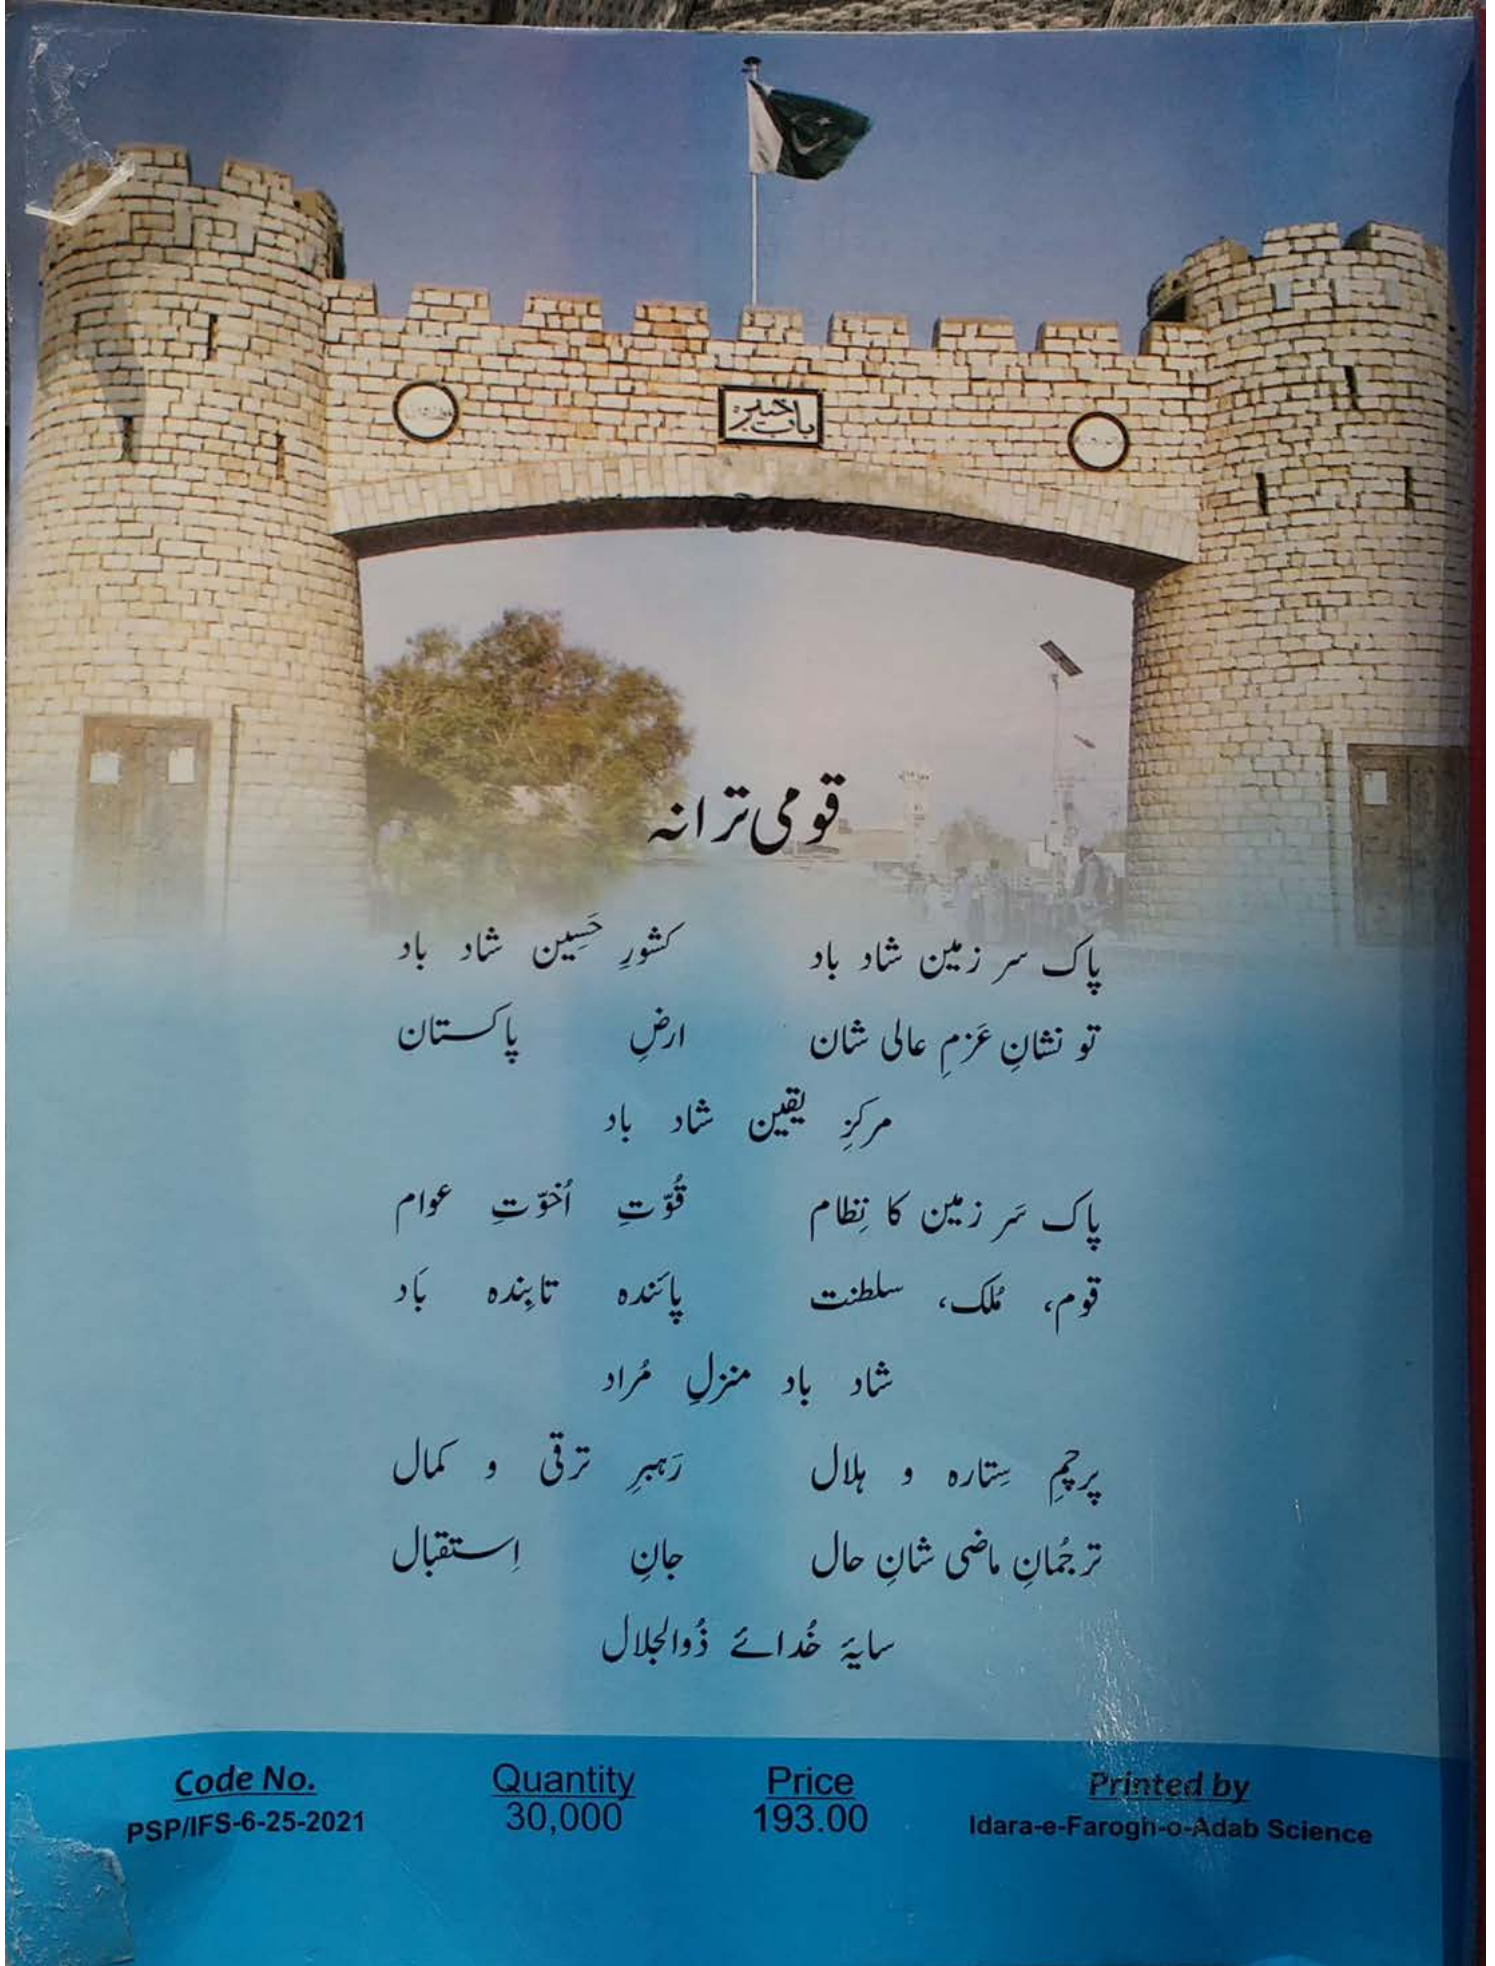 باب خیبر
قومی ترانہ
پاک سر زمین شاد باد کشورِ حَسِین شاد باد
تو نشانِ عَزمِ عالی شان ارضِ پاکستان
مرکزِ یقین شاد باد
پاک سَر زمین کا نِظام قُوّتِ اُخوّتِ عوام
قوم، مُلک، سلطنت پائندہ تابِندہ بَاد
شاد باد منزلِ مُراد
پرچمِ سِتارہ و ہلال رَہبرِ ترقی و کمال
ترجُمانِ ماضی شانِ حال جانِ اِستقبال
سایۂ خُدائے ذُوالجلال
Code No. Quantity Price Printed by
PSP/IFS-6-25-2021 30,000 193.00 Idara-e-Farogh-o-Adab Science